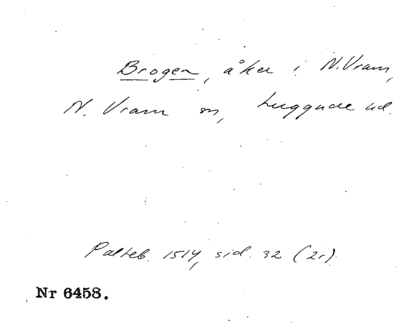 Brogen, åker i N. Vram,
N. Vram sn, Luggude hd.
Palteb. 1514, sid. 32 (2r)
Nr 6458.